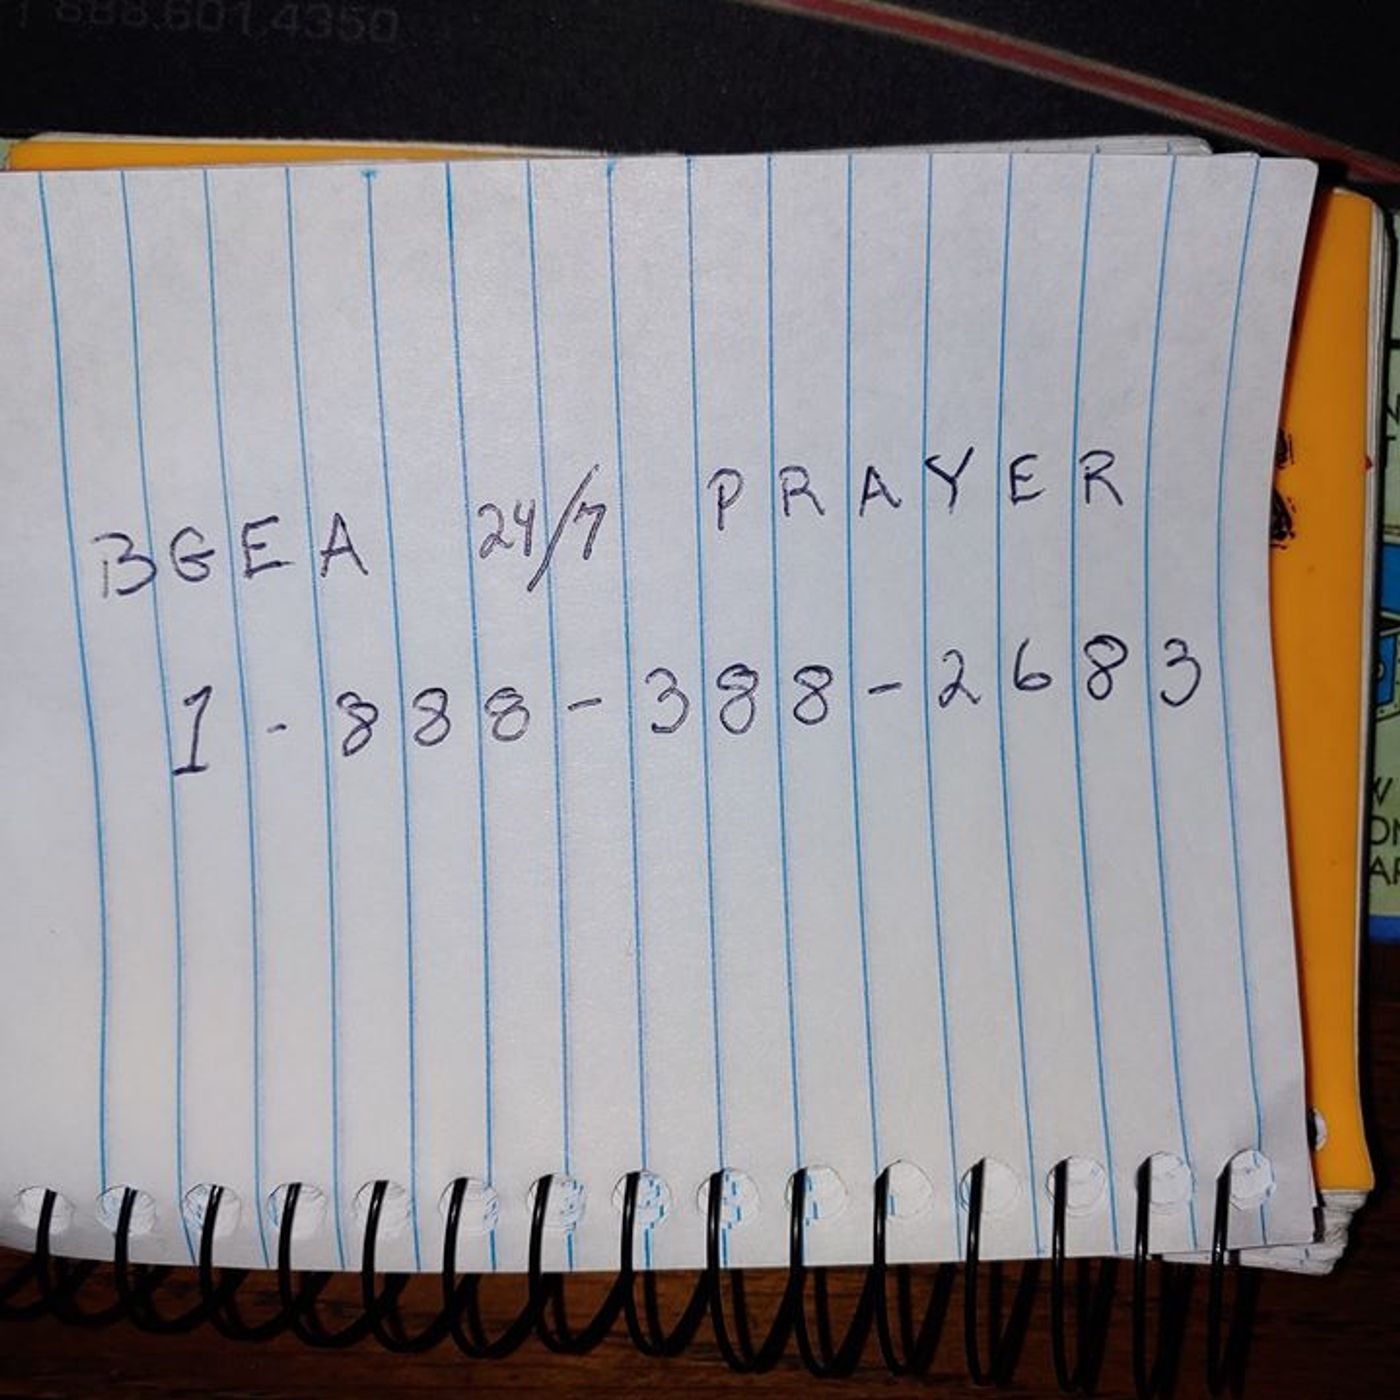 1 888.601.4350
BGEA 24/7 PRAYER
1-888-388-2683